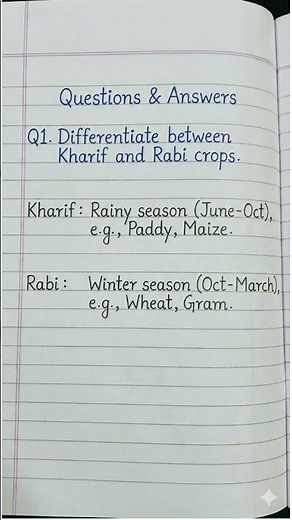 Questions & Answers
Q1. Differentiate between
Kharif and Rabi crops.
Kharif : Rainy season (June-Oct),
e.g., Paddy, Maize.
Rabi : Winter season (Oct-March),
e.g., Wheat, Gram.